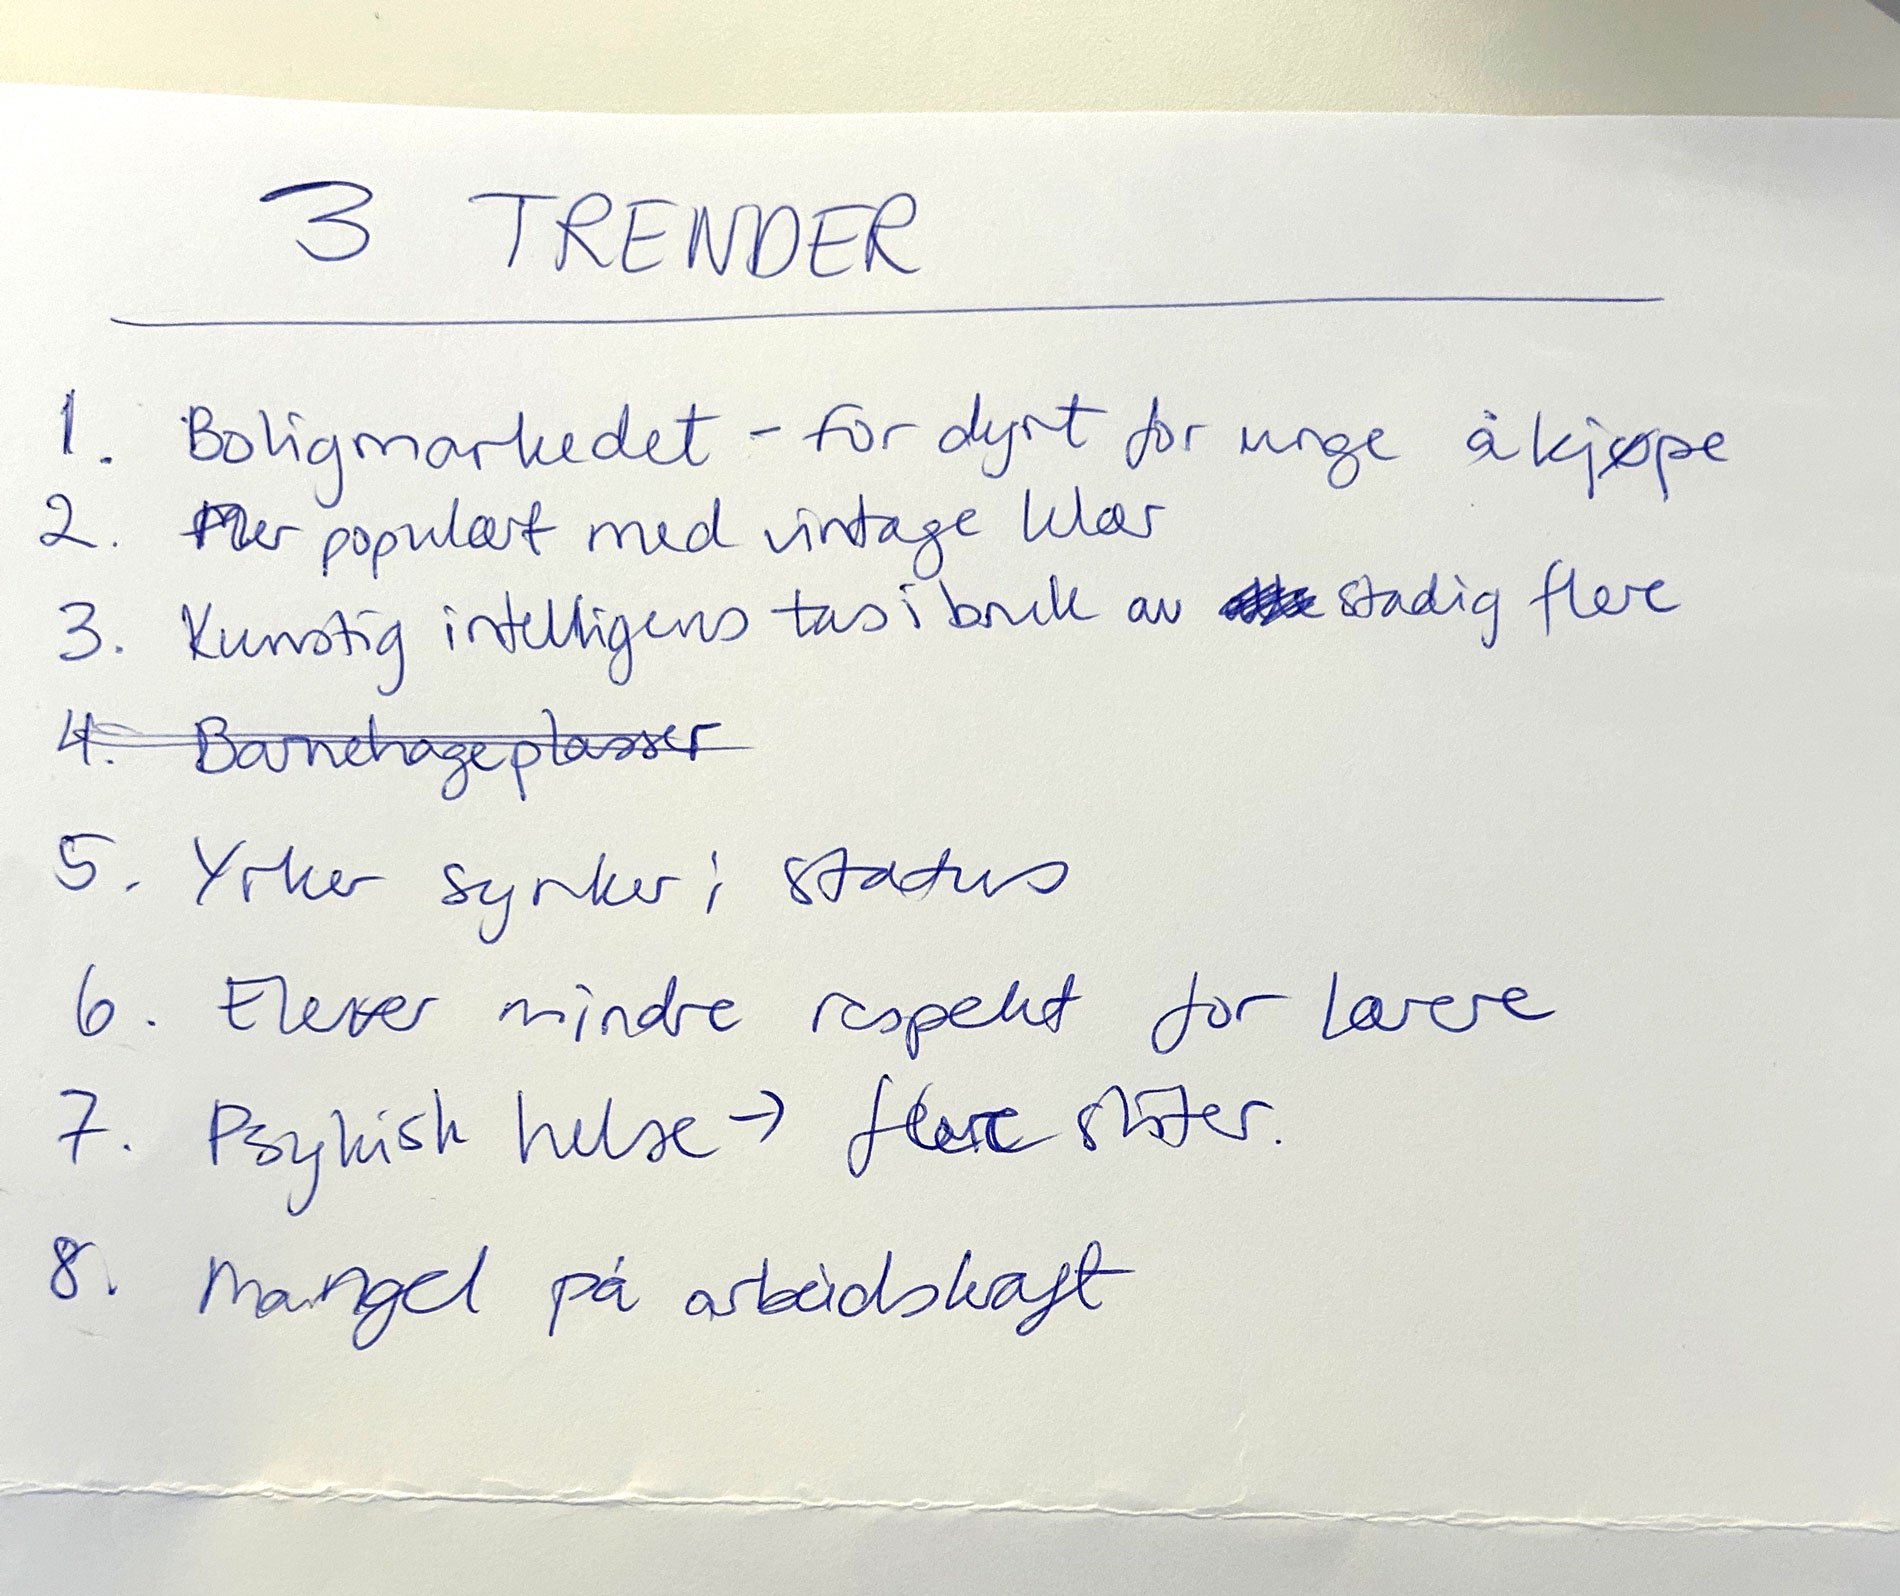 3 TRENDER
1. Boligmarkedet - for dyrt for unge å kjøpe
2. Mer populært med vintage klær
3. Kunstig intelligens tas i bruk av stadig flere
4. Barnehageplasser
5. Yrker synker i status
6. Elever mindre respekt for lærere
7. Psykisk helse → flere sliter.
8. Mangel på arbeidskraft